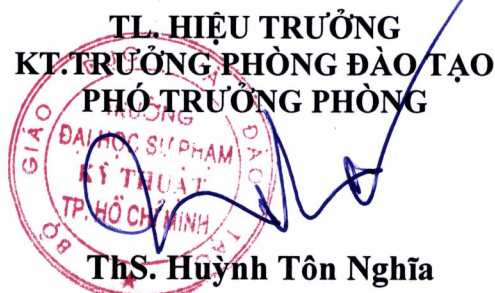 TL. HIỆU TRƯỞNG
KT.TRƯỞNG PHÒNG ĐÀO TẠO
PHÓ TRƯỞNG PHÒNG
BỘ GIÁO DỤC VÀ ĐÀO TẠO
TRƯỜNG
ĐẠI HỌC SƯ PHẠM
KỸ THUẬT
TP. HỒ CHÍ MINH
ThS. Huỳnh Tôn Nghĩa